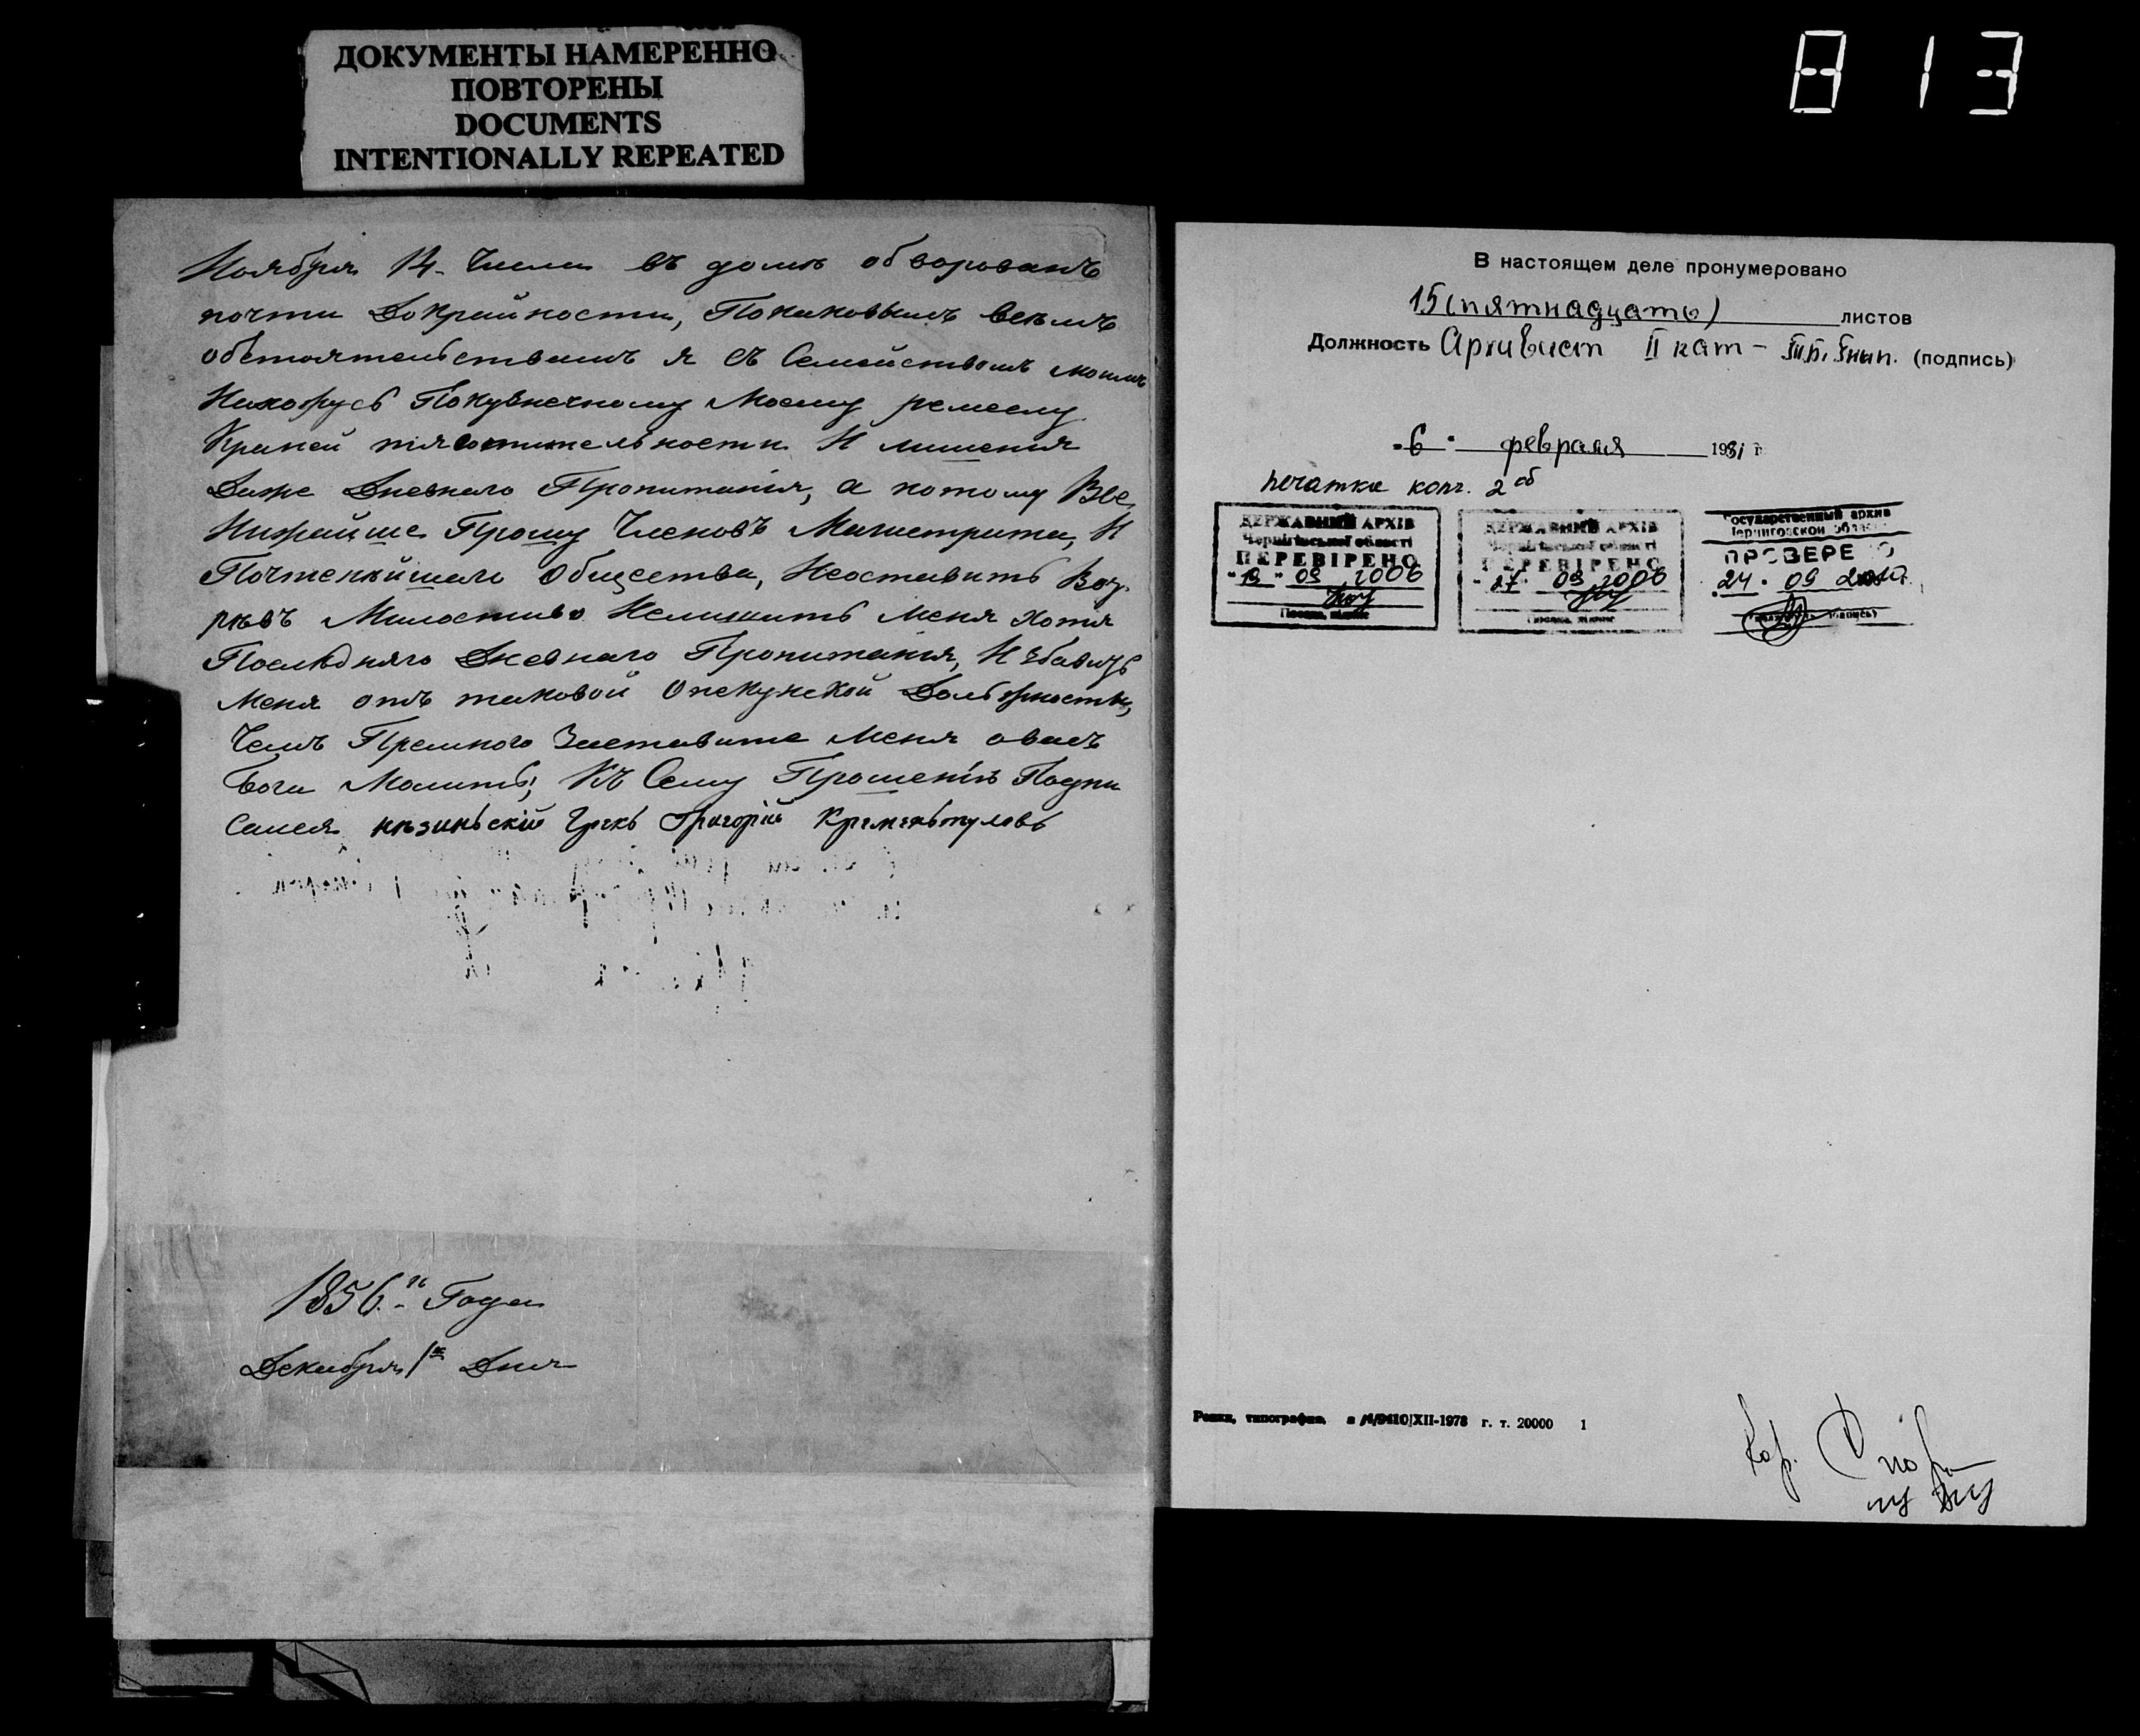 ДОКУМЕНТЫ НАМЕРЕННО
ПОВТОРЕНЫ
DOCUMENTS
INTENTIONALLY REPEATED
813
Ноября 14. Числа въ домѣ обворованъ
почти Докрайности, Покаковымъ всѣмъ
обстоятельствамъ я съ Семействомъ моимъ
Нахожусь Покузнечному Моему ремеслу
Крайней тягостительности И лишения
Даже Дневнаго Пропитанія, а потому Все
Нижайше Прошу Членовъ Магистрата, И
Почтеннѣйшаго Общества, Неоставить Воз
рѣвъ Милостиво Нелишить меня хотя
Послѣдняго Дневнаго Пропитанія, Избавить
меня отъ таковой Опекунской Должности,
Чемъ Премного Заставите меня овасъ
Бога Молить, Къ Сему Прошенію Подпи
сался нѣзиньскій Грекъ Григорій
1856.го Года
Декабря 1го Дня
В настоящем деле пронумеровано
15 (пятнадцать) листов
Должность Архивист II кат - (подпись)
"6" февраля 1981 г.
печатка кол. 2об
ДЕРЖАВНИЙ АРХІВ
Чернігівської області
ПЕРЕВІРЕНО
09 2006
Посада, підпис
ДЕРЖАВНИЙ АРХІВ
Чернігівської області
ПЕРЕВІРЕНО
"27" 09 2006
Посада, підпис
Государственный архив
Черниговской области
ПРОВЕРЕНО
24. 09
XII-1978 г. т. 20000 1